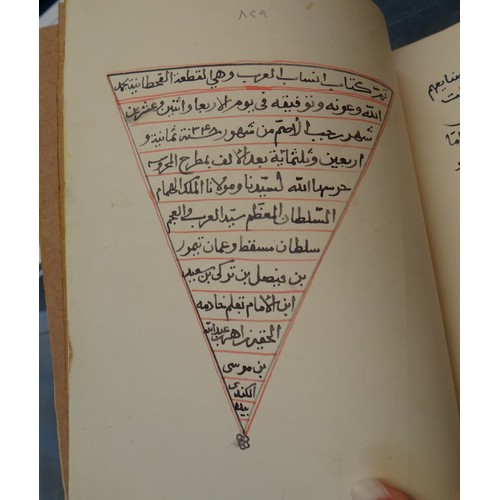 ٨٢٩
تمت كتاب انساب العرب وهي القطعة القحطانية بحمد
الله وعونه وتوفيقه في يوم الاربعا واثنين وعشرين
شهر رجب الاصم من شهور سنة ١٣٤٨ ثمانية و
اربعين وثلثماية بعد الالف بمطرح المحروسه
حرسها الله لسيدنا ومولانا الملك الهمام
السلطان المعظم سيد العرب والعجم
سلطان مسقط وعمان تيمور
بن فيصل بن تركي بن سعيد
ابن الامام بقلم خادمه
الحقير زاهر بن عبدالله
بن موسى
الكندي
بيده